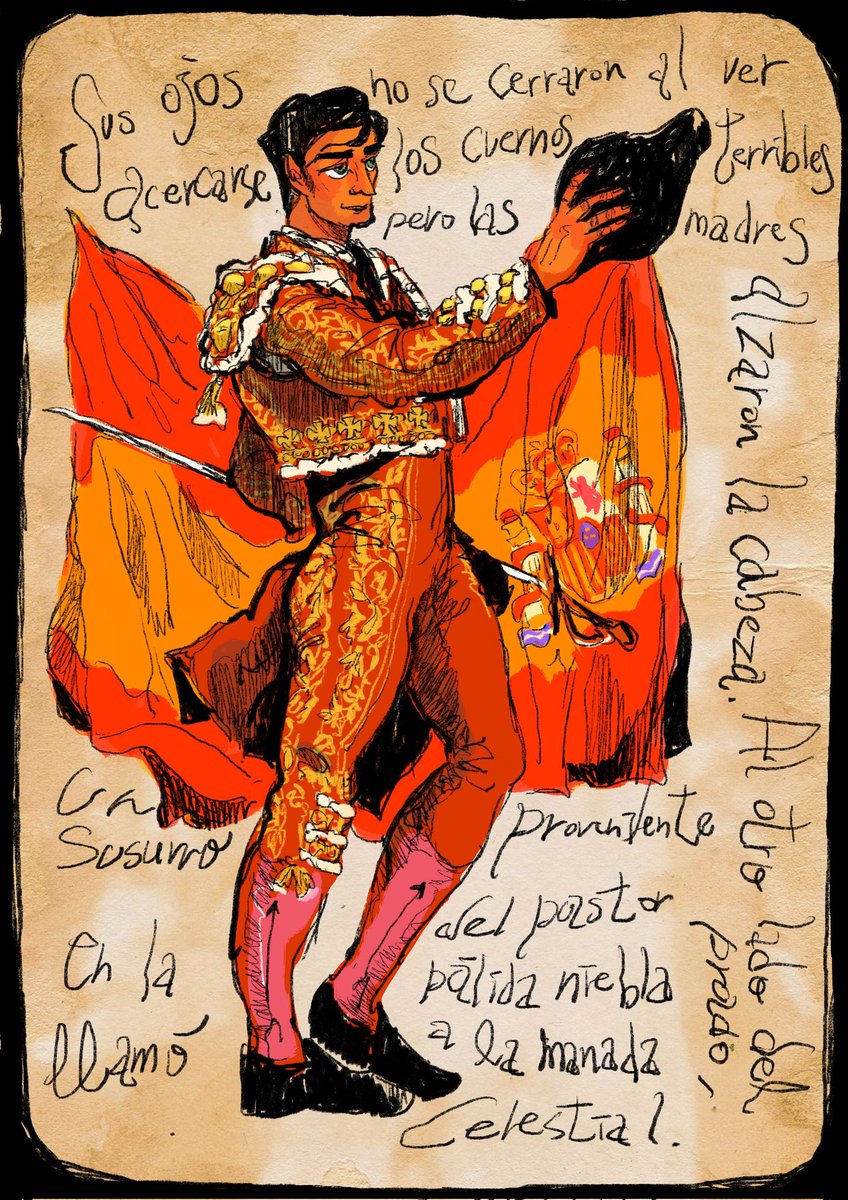 Sus ojos no se cerraron al ver
acercarse los cuernos terribles
pero las madres
alzaron la cabeza. Al otro lado del
prado,
Un provenitente
susurro
del pastor
En la pálida niebla
llamó a la manada
Celestial.